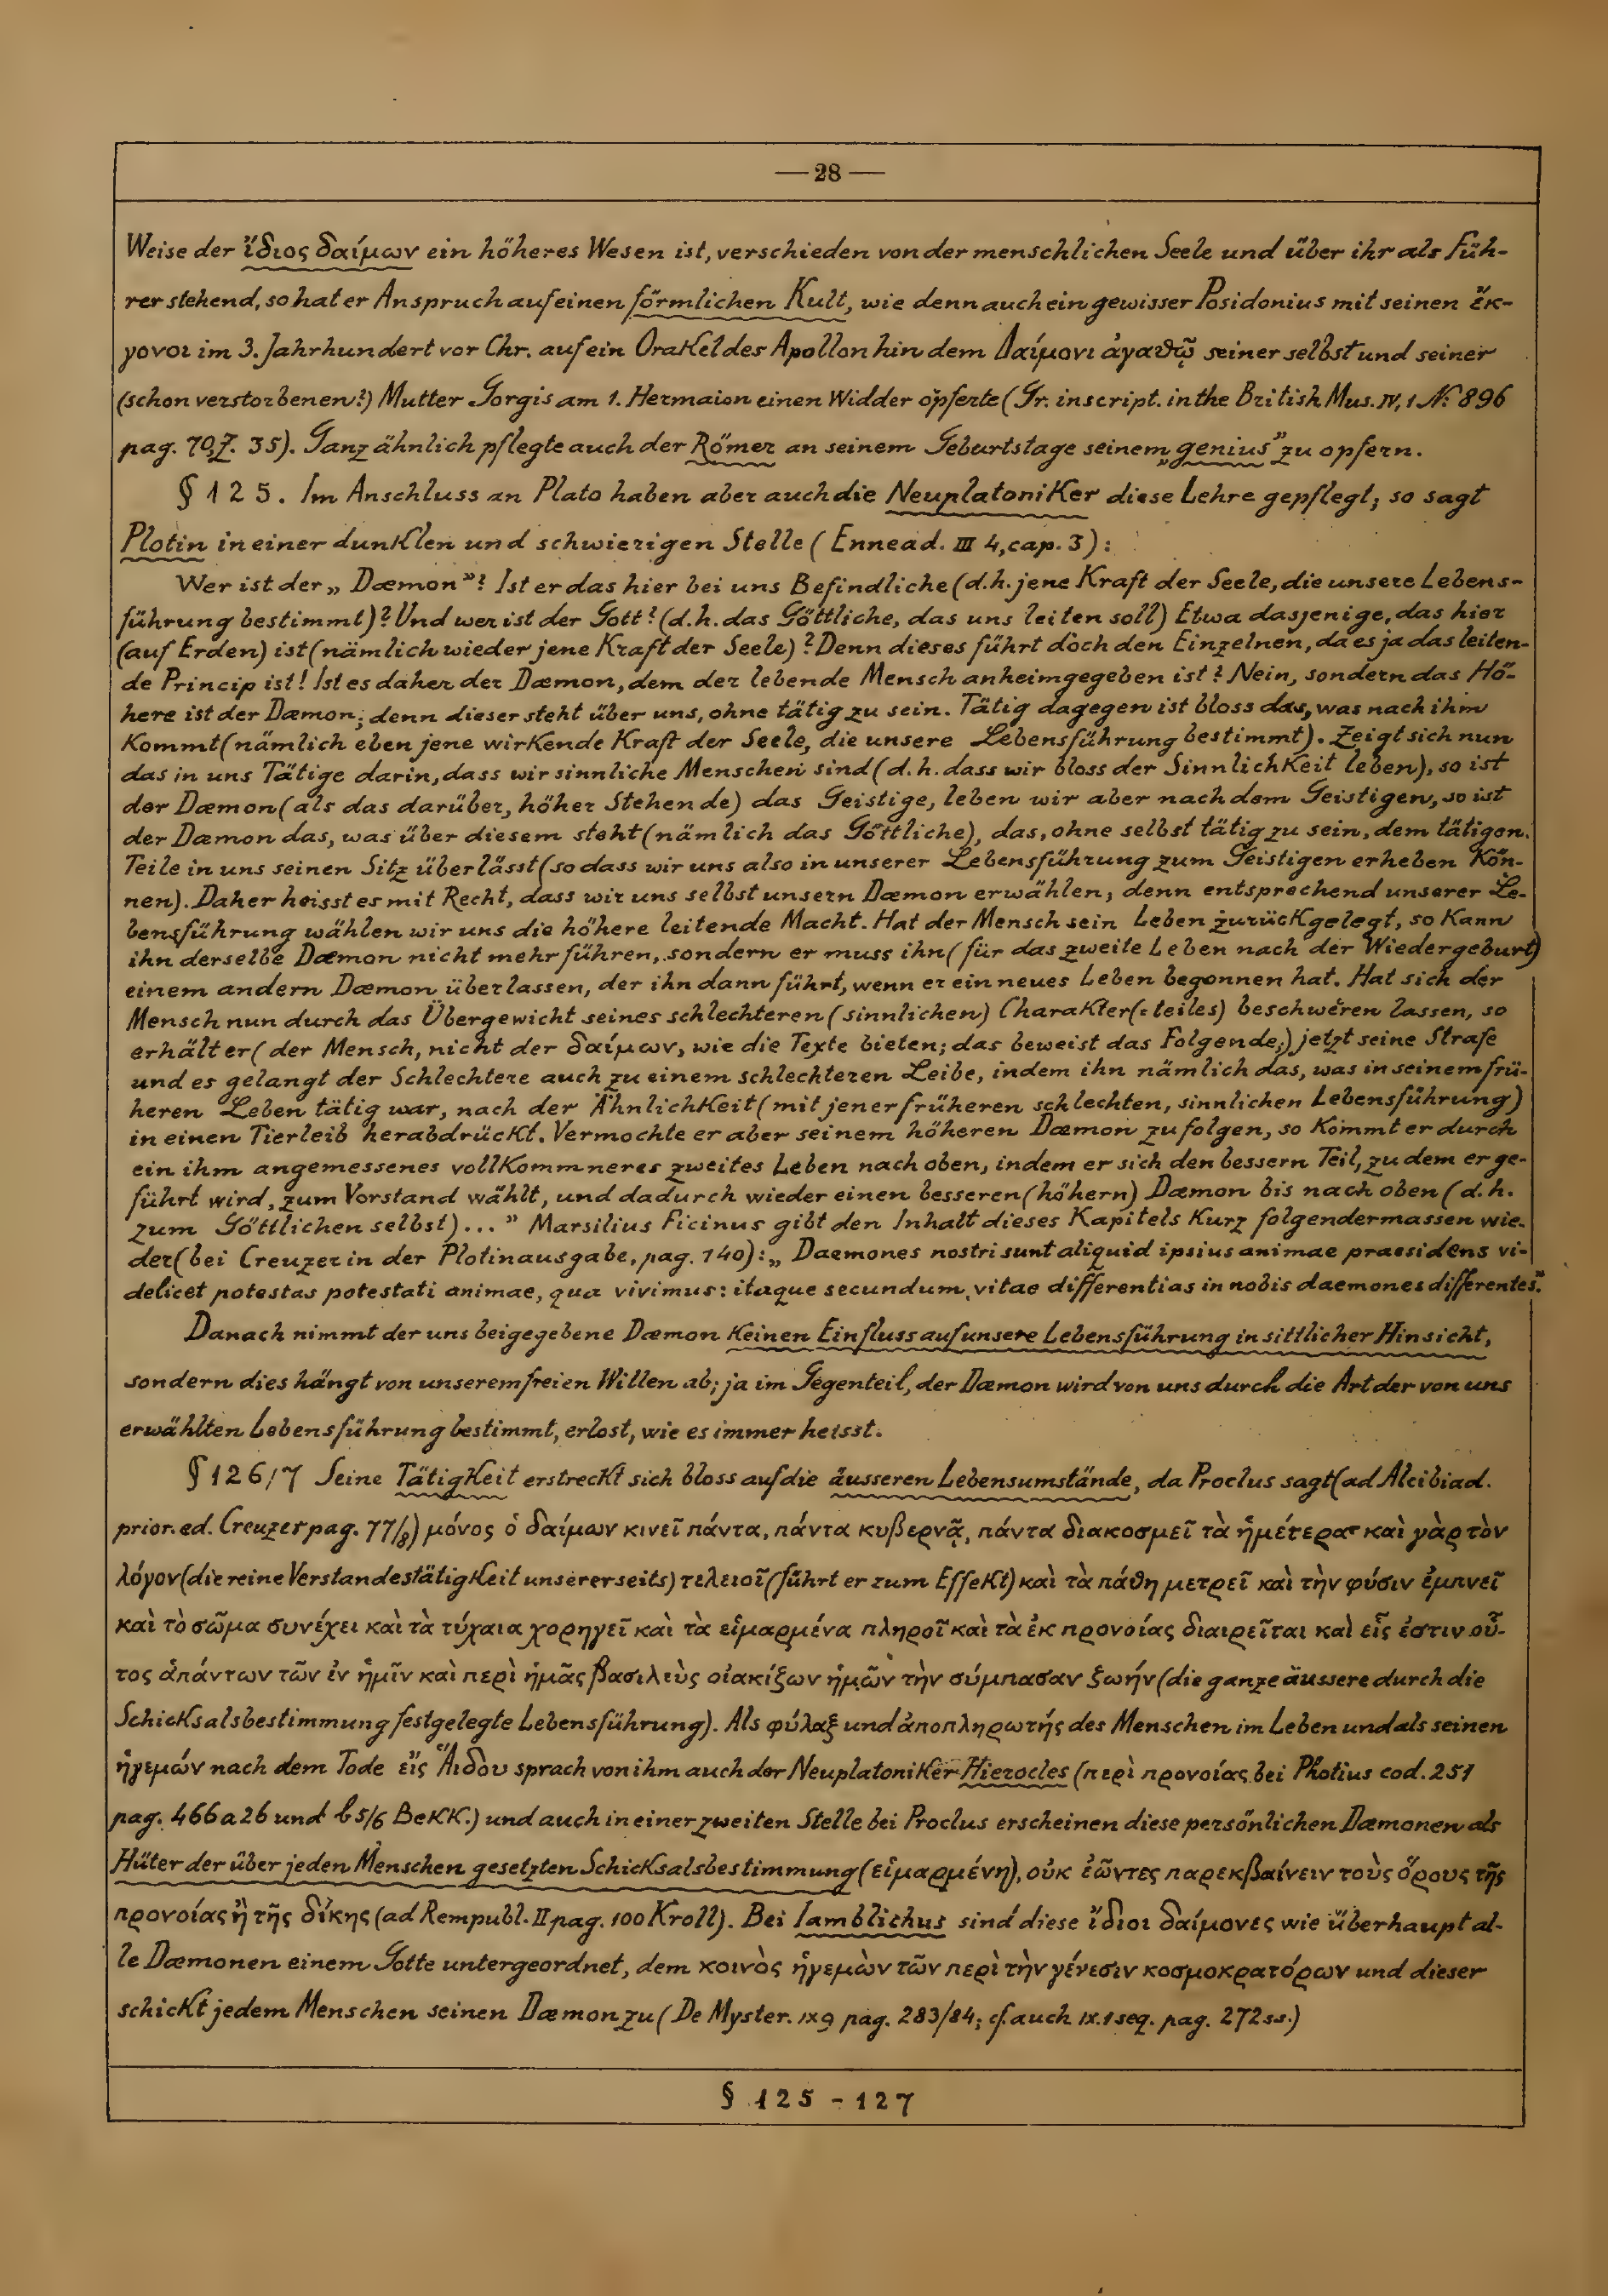 — 28 —
Weise der ἴδιος δαίμων ein höheres Wesen ist, verschieden von der menschlichen Seele und über ihr als Füh-
rer stehend, so hat er Anspruch auf einen förmlichen Kult, wie denn auch ein gewisser Posidonius mit seinen ἔκ-
γονοι im 3. Jahrhundert vor Chr. auf ein Orakel des Apollon hin dem Δαίμονι ἀγαθῷ seiner selbst und seiner
(schon verstorbenen?) Mutter Gorgis am 1. Hermaion einen Widder opferte (Gr. inscript. in the British Mus. IV, 1 No 896
pag. 70, Z. 35). Ganz ähnlich pflegte auch der Römer an seinem Geburtstage seinem „genius” zu opfern.
§ 125. Im Anschluss an Plato haben aber auch die Neuplatoniker diese Lehre gepflegt; so sagt
Plotin in einer dunklen und schwierigen Stelle (Ennead. III 4, cap. 3):
Wer ist der „Dæmon”? Ist er das hier bei uns Befindliche (d.h. jene Kraft der Seele, die unsere Lebens-
führung bestimmt)? Und wer ist der Gott? (d.h. das Göttliche, das uns leiten soll) Etwa dasjenige, das hier
(auf Erden) ist (nämlich wieder jene Kraft der Seele)? Denn dieses führt doch den Einzelnen, da es ja das leiten-
de Princip ist! Ist es daher der Dæmon, dem der lebende Mensch anheimgegeben ist? Nein, sondern das Hö-
here ist der Dæmon; denn dieser steht über uns, ohne tätig zu sein. Tätig dagegen ist bloss das, was nach ihm
kommt (nämlich eben jene wirkende Kraft der Seele, die unsere Lebensführung bestimmt). Zeigt sich nun
das in uns Tätige darin, dass wir sinnliche Menschen sind (d.h. dass wir bloss der Sinnlichkeit leben), so ist
der Dæmon (als das darüber, höher Stehende) das Geistige, leben wir aber nach dem Geistigen, so ist
der Dæmon das, was über diesem steht (nämlich das Göttliche), das, ohne selbst tätig zu sein, dem tätigen
Teile in uns seinen Sitz überlässt (so dass wir uns also in unserer Lebensführung zum Geistigen erheben kön-
nen). Daher heisst es mit Recht, dass wir uns selbst unsern Dæmon erwählen; denn entsprechend unserer Le-
bensführung wählen wir uns die höhere leitende Macht. Hat der Mensch sein Leben zurückgelegt, so kann
ihn derselbe Dæmon nicht mehr führen, sondern er muss ihn (für das zweite Leben nach der Wiedergeburt)
einem andern Dæmon überlassen, der ihn dann führt, wenn er ein neues Leben begonnen hat. Hat sich der
Mensch nun durch das Übergewicht seines schlechteren (sinnlichen) Charakter(=teiles) beschweren lassen, so
erhält er (der Mensch, nicht der δαίμων, wie die Texte bieten; das beweist das Folgende;) jetzt seine Strafe
und es gelangt der Schlechtere auch zu einem schlechteren Leibe, indem ihn nämlich das, was in seinem frü-
heren Leben tätig war, nach der Ähnlichkeit (mit jener früheren schlechten, sinnlichen Lebensführung)
in einen Tierleib herabdrückt. Vermochte er aber seinem höheren Dæmon zu folgen, so kommt er durch
ein ihm angemessenes vollkommneres zweites Leben nach oben, indem er sich den bessern Teil, zu dem er ge-
führt wird, zum Vorstand wählt, und dadurch wieder einen besseren (höhern) Dæmon bis nach oben (d.h.
zum Göttlichen selbst)...” Marsilius Ficinus gibt den Inhalt dieses Kapitels kurz folgendermassen wie-
der (bei Creuzer in der Plotinausgabe, pag. 140): „Daemones nostri sunt aliquid ipsius animae praesidens vi-
delicet potestas potestati animae, qua vivimus: itaque secundum vitae differentias in nobis daemones differentes.”
Danach nimmt der uns beigegebene Dæmon keinen Einfluss auf unsere Lebensführung in sittlicher Hinsicht,
sondern dies hängt von unserem freien Willen ab; ja im Gegenteil, der Dæmon wird von uns durch die Art der von uns
erwählten Lebensführung bestimmt, erlost, wie es immer heisst.
§ 126/7 Seine Tätigkeit erstreckt sich bloss auf die äusseren Lebensumstände, da Proclus sagt (ad Alcibiad.
prior. ed. Creuzer pag. 77/8) μόνος ὁ δαίμων κινεῖ πάντα, πάντα κυβερνᾷ, πάντα διακοσμεῖ τὰ ἡμέτερα· καὶ γὰρ τὸν
λόγον (die reine Verstandestätigkeit unsererseits) τελειοῖ (führt er zum Effekt) καὶ τὰ πάθη μετρεῖ καὶ τὴν φύσιν ἐμπνεῖ
καὶ τὸ σῶμα συνέχει καὶ τὰ τύχαια χορηγεῖ καὶ τὰ εἱμαρμένα πληροῖ καὶ τὰ ἐκ προνοίας διαιρεῖται καὶ εἷς ἐστιν οὗ-
τος ἁπάντων τῶν ἐν ἡμῖν καὶ περὶ ἡμᾶς βασιλεὺς οἰακίζων ἡμῶν τὴν σύμπασαν ζωήν (die ganze äussere durch die
Schicksalsbestimmung festgelegte Lebensführung). Als φύλαξ und ἀποπληρωτής des Menschen im Leben und als seinen
ἡγεμών nach dem Tode εἰς Ἅιδου sprach von ihm auch der Neuplatoniker Hierocles (περὶ προνοίας bei Photius cod. 251
pag. 466 a 26 und b 5/6 Bekk.) und auch in einer zweiten Stelle bei Proclus erscheinen diese persönlichen Dæmonen als
Hüter der über jeden Menschen gesetzten Schicksalsbestimmung (εἱμαρμένη), οὐκ ἐῶντες παρεκβαίνειν τοὺς ὅρους τῆς
προνοίας ἢ τῆς δίκης (ad Rempubl. II pag. 100 Kroll). Bei Iamblichus sind diese ἴδιοι δαίμονες wie überhaupt al-
le Dæmonen einem Gotte untergeordnet, dem κοινὸς ἡγεμὼν τῶν περὶ τὴν γένεσιν κοσμοκρατόρων und dieser
schickt jedem Menschen seinen Dæmon zu (De Myster. IX 9 pag. 283/84; cf. auch IX. 1 seq. pag. 272 ss.)
§ 125 - 127